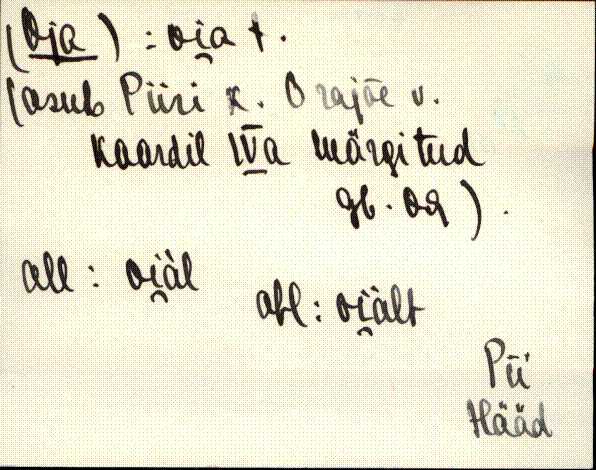 (Oja) : oi̯a t.
(asub Piiri k. Orajõe v.
Kaardil IVa märgitud
gb. 09).
all : oi̯àl
abl : oi̯àlt
Pii
Hääd